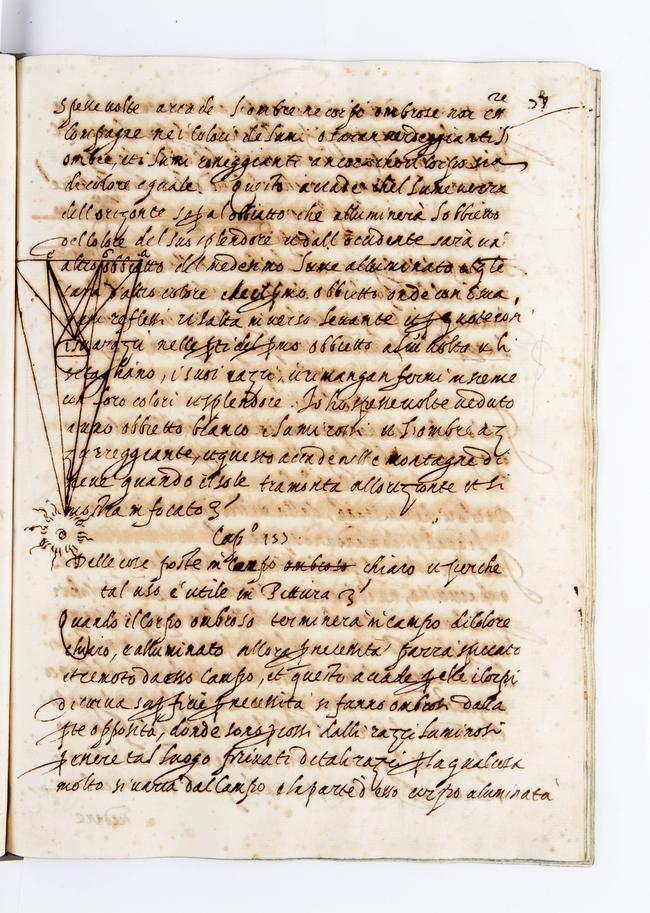 Spesse volte accade l'ombre ne corpi ombrosi non esser
compagne ne i colori de lumi o saran verdeggianti l'
ombre, et i lumi rosseggianti ancora che il corpo sia
di colore eguale. questo accade che il lume verra
dell orizonte sop al obbietto che alluminerà l'obbietto
del colore del suo splendore et dall' occidente sarà un'
altro obbietto del medesmo lume alluminato el q̃le
sara d'altro colore che il pmo obbietto onde con i sua
razi reflessi risalta in verso levante
razzi nelle pti del pmo obbietto a lui volto
, i suoi razzi, et rimangan fermi insieme
con loro colori et splendore. Io ho spesse volte veduto
a uno obbietto bianco i lumi rossi et l'ombre az
zureggiante, et questo accade nelle montagne di
neve quando il sole tramonta all orizonte et si
mostra infocato
Cap.º 155
Delle cose poste in Campo ombroso chiaro et perche
tal uso é utile in Pittura
Quando il Corpo ombroso terminerà in campo di colore
chiaro, e alluminato allora p necessità parra spiccato
et remoto da esso Campo, et questo accade p che i Corpi
di curva supficie p necessità si fanno ombrosi dalla
pte opposità, donde sono pcossi dalli razzi luminosi
p essere tal luogo privati de tali razzi p la qual cosa
molto si varia dal Campo e la parte d'esso corpo aluminata
e c a
37